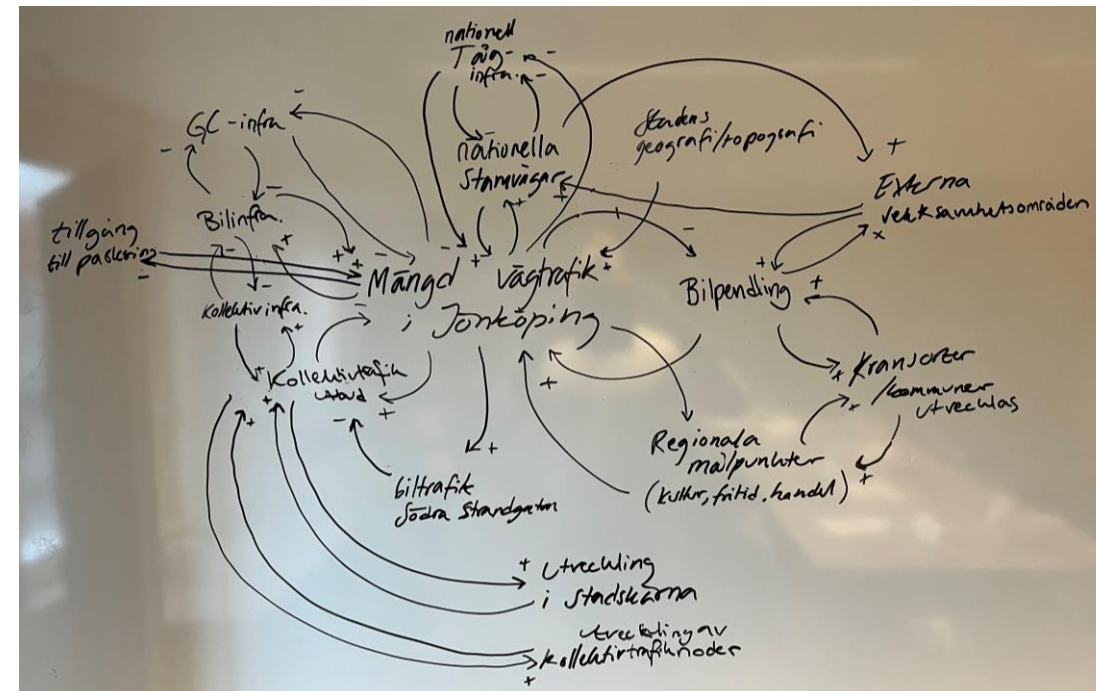 nationell
Tåg-
infra.
GC-infra
nationella
Stamvägar
Stadens
geografi/topografi
Externa
verksamhetsområden
Bilinfra.
tillgång
till parkering
Mängd vägtrafik
i Jönköping
Bilpendling
Kollektivinfra.
Kollektivtrafik
stad
Kransorter
/kommuner
utvecklas
Regionala
målpunkter
(kultur, fritid, handel)
biltrafik
Södra Strandgatan
Utveckling
i Stadskärna
utveckling av
kollektivtrafiknoder